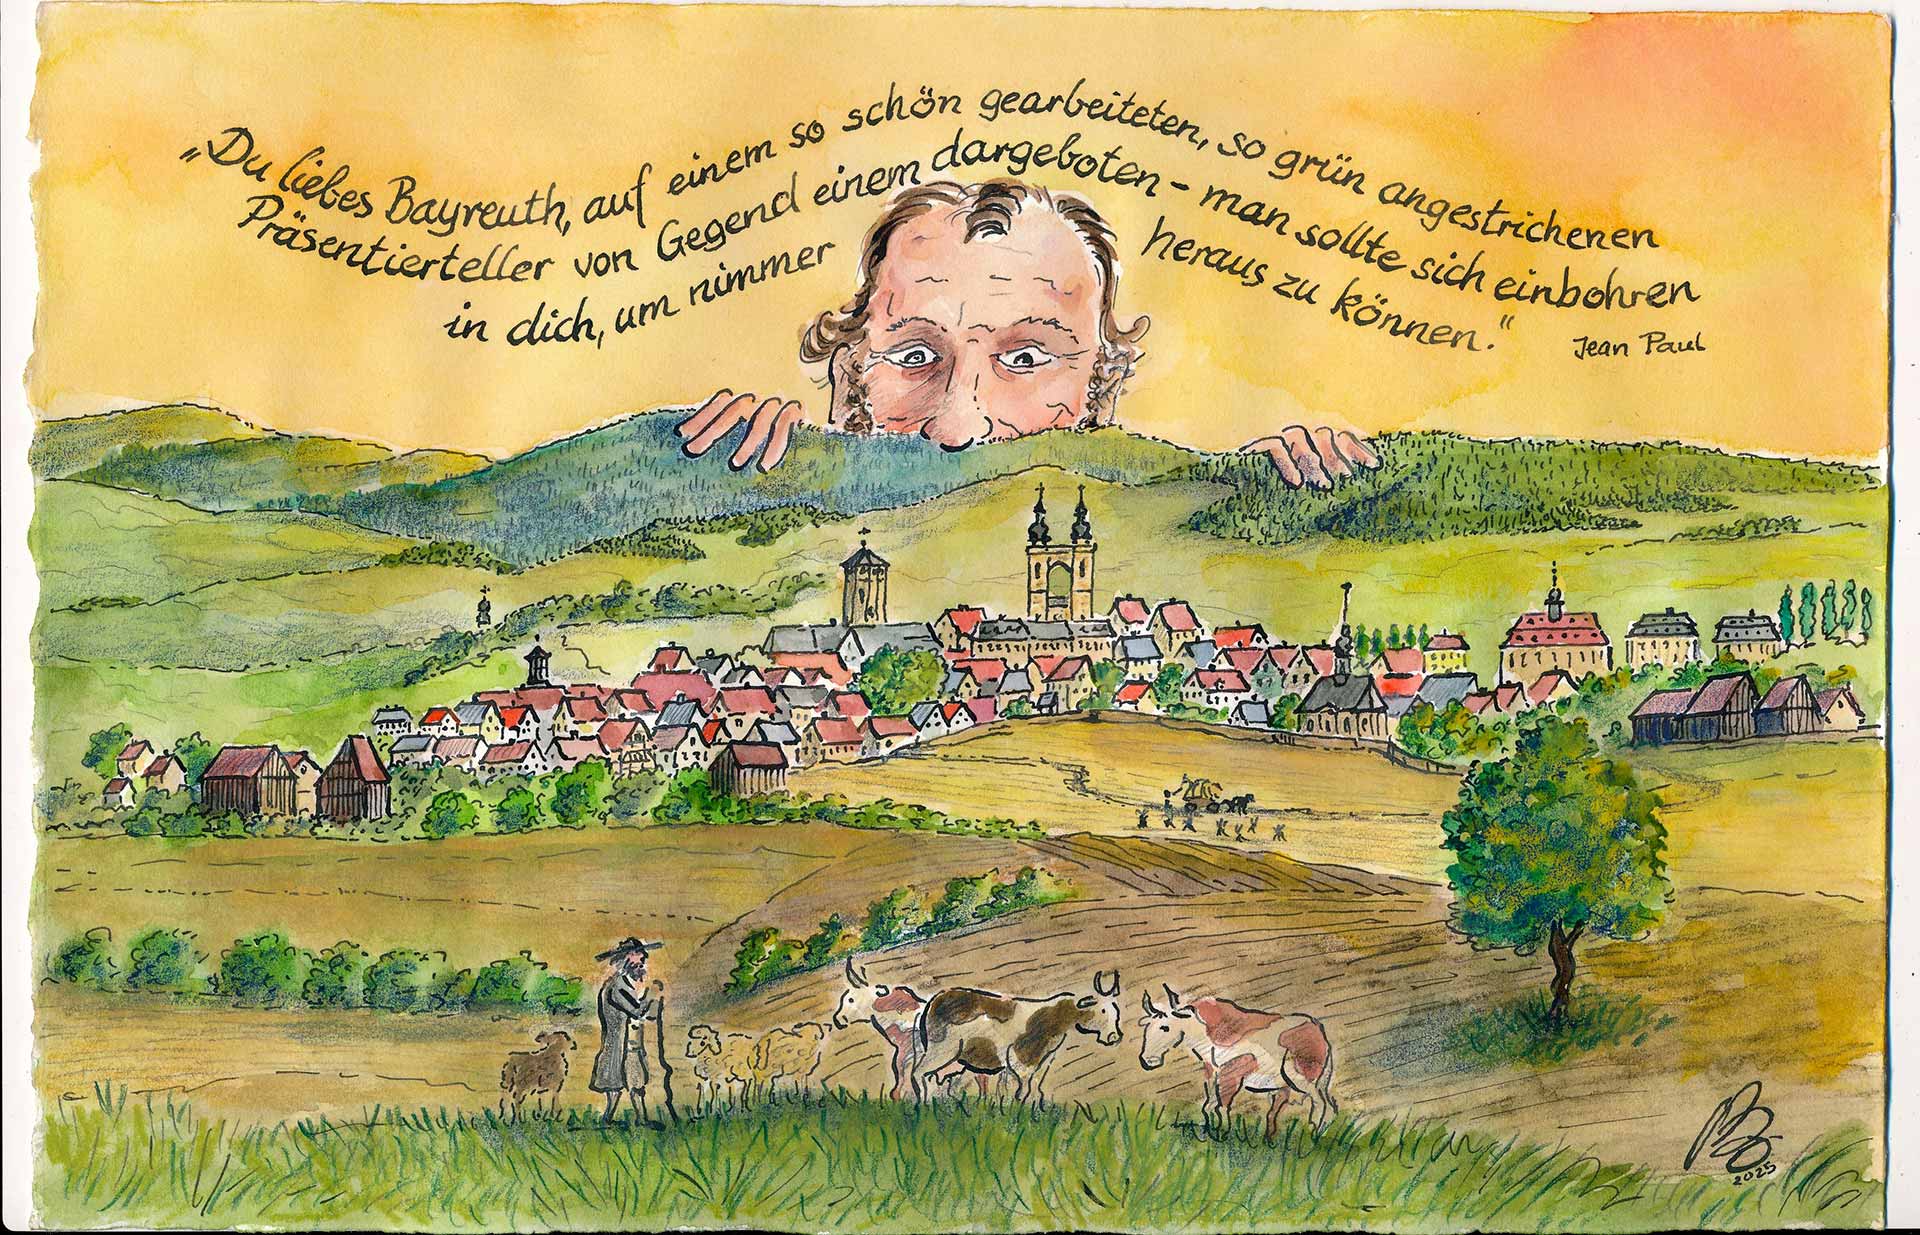 „Du liebes Bayreuth, auf einem so schön gearbeiteten, so grün angestrichenen
Präsentierteller von Gegend einem dargeboten - man sollte sich einbohren
in dich, um nimmer heraus zu können."
Jean Paul
2025